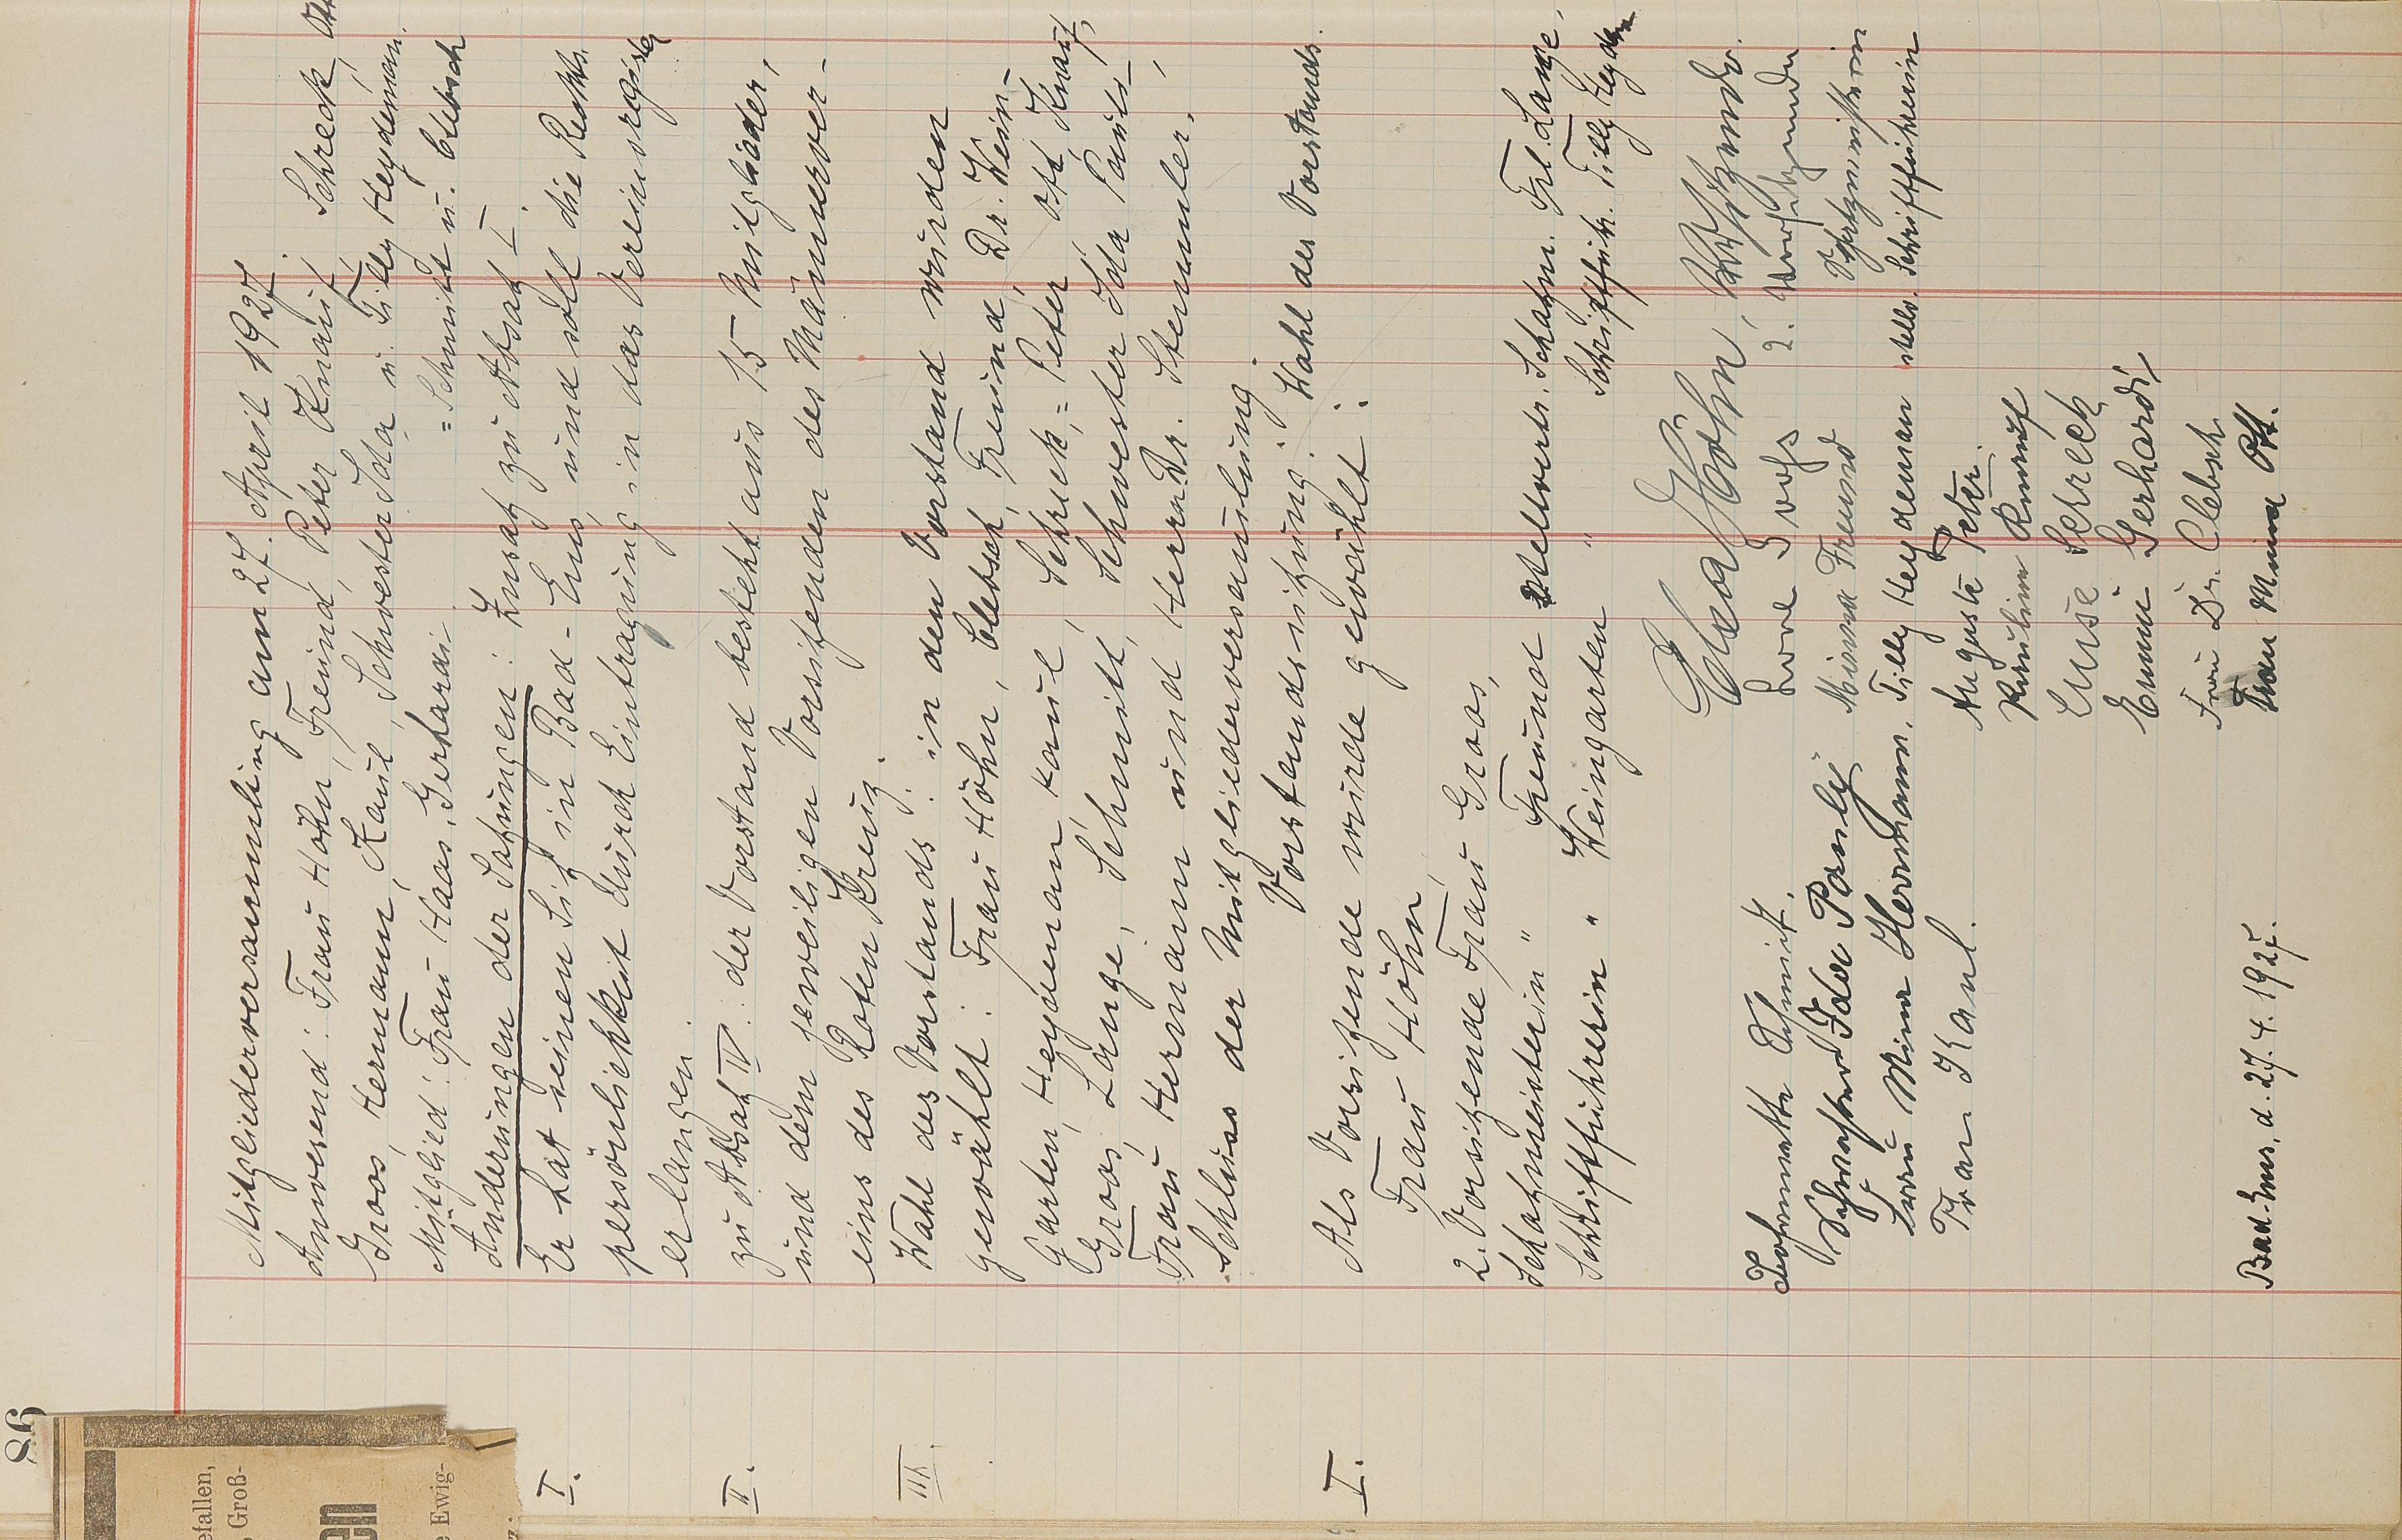 86
Mitgliederversammlung am 27. April 1927.
Anwesend: Frau Höhn, Freund, Peter Knauf, Schreck, Ott
Groos, Hermann, Kaul, Schwester Ida u. Tilly Heydeman.
Mitglied: Frau Haas, Gerhardi = Schmitt u. Clebsch
Änderungen der Satzungen: Zusatz zu Absatz I.
I. Er hat seinen Sitz in Bad-Ems, und soll die Rechts
persönlichkeit durch Eintragung in das Vereinsregister
erlangen.
II. zu Absatz IV: der Vorstand besteht aus 15 Mitglieder,
und dem jeweiligen Vorsitzenden des Männerver-
eins des Roten Kreuz.
III. Wahl des Vorstands: in den Vorstand wurden
gewählt: Frau Höhn, Clebsch, Freund, Dr. Wein-
garten, Heydeman Kaul, Schreck, = Peter, Ott, Knauf,
Groos, Lange, Schmitt, Schwester Ida Pauli,
Frau Hermann und Herrn Dr. Stemmler.
Schluss der Mitgliederversammlung.
Vorstandssitzung: Wahl des Vorstands.
I. Als Vorsitzende wurde gewählt:
Frau Höhn,
2. Vorsitzende Frau Groos,
Schatzmeisterin " Freund stellvertr. Schatzm. Frl. Lange,
Schriftführerin " Weingarten " Schriftfüh. Tilly Heydeman
Höhn, Vorsitzende.
2. Vorsitzende
Minna Freund Schatzmeisterin
Tilly Heydeman stellv. Schriftführerin
Schmitt.
Schwester Ida Pauly
Frau Mina Herrmann.
Frau Kaul.
Auguste Peter.
Knauf
Luise Schreck
Emmi Gerhardi
Frau Dr. Clebsch
Frau Minna Ott.
Bad-Ems, d. 27.4.1927.
efallen,
Groß-
en
e Ewig-